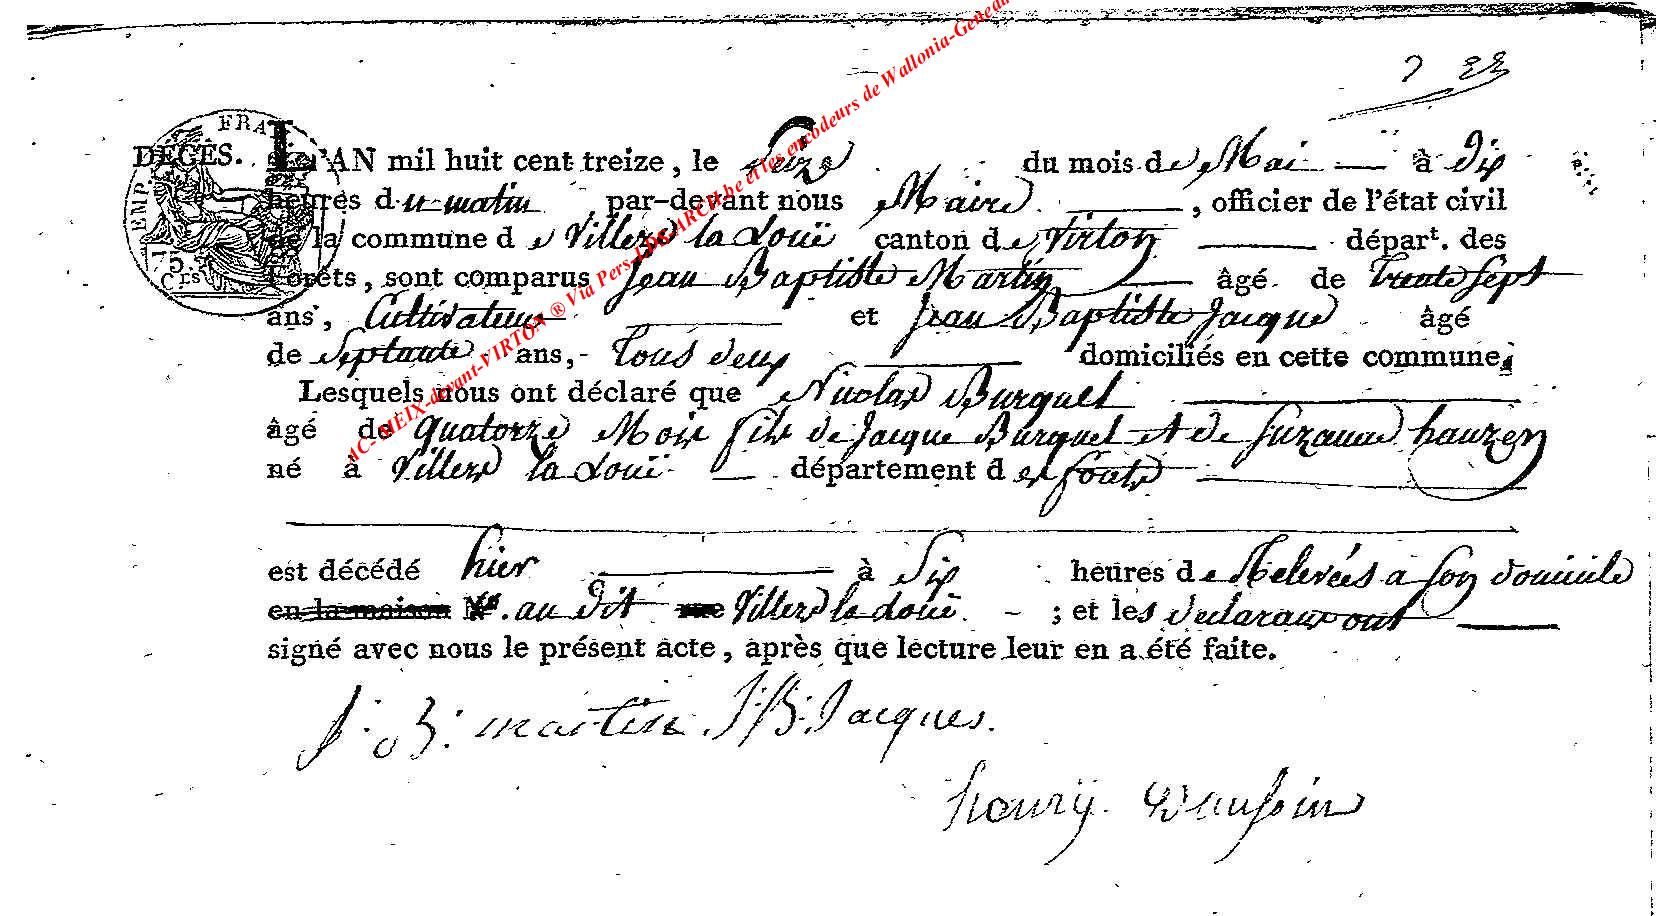 7 22
FRA
EMP.
75
CES
DÉCÈS. L'AN mil huit cent treize, le seize du mois de Mai à dix
heures du matin par-devant nous Maire, officier de l'état civil
de la commune de Villers la Loüe canton de Virton départ. des
Forêts, sont comparus Jean Baptiste Martin âgé de trente sept
ans, Cultivateur et Jean Baptiste Jacque âgé
de septante ans, tous deux domiciliés en cette commune.
Lesquels nous ont déclaré que Nicolas Burquel
âgé de quatorze Mois fils de Jacque Burquel et de Suzanne hauzen
né à Villers la Loüe département des foretz
est décédé hier à Six heures de Relevées a son domicile
en la maison N°. au dit rue Villers la Loüe ; et les declarans ont
signé avec nous le présent acte, après que lecture leur en a été faite.
J. B. martin J. B. Jacques.
henry
MC-MEIX-devant-VIRTON ® Via Pers-LDG-ARCH.be et les encodeurs de Wallonia-Genea